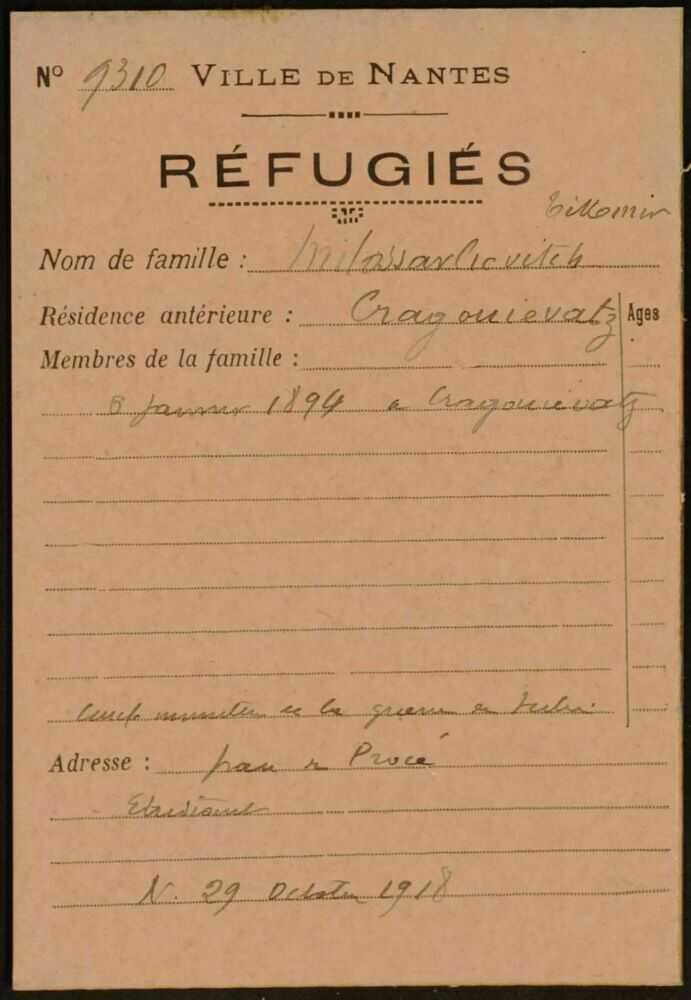 Nº 9310 VILLE DE NANTES
RÉFUGIÉS
Tikomir
Nom de famille : Milossavlievitch
Résidence antérieure : Cragouievatz Ages
Membres de la famille :
6 janvier 1894 a Cragouievatz
ministère de la guerre en Serbie
Adresse : parc de Procé
Etudiant
N. 29 Octobre 1918